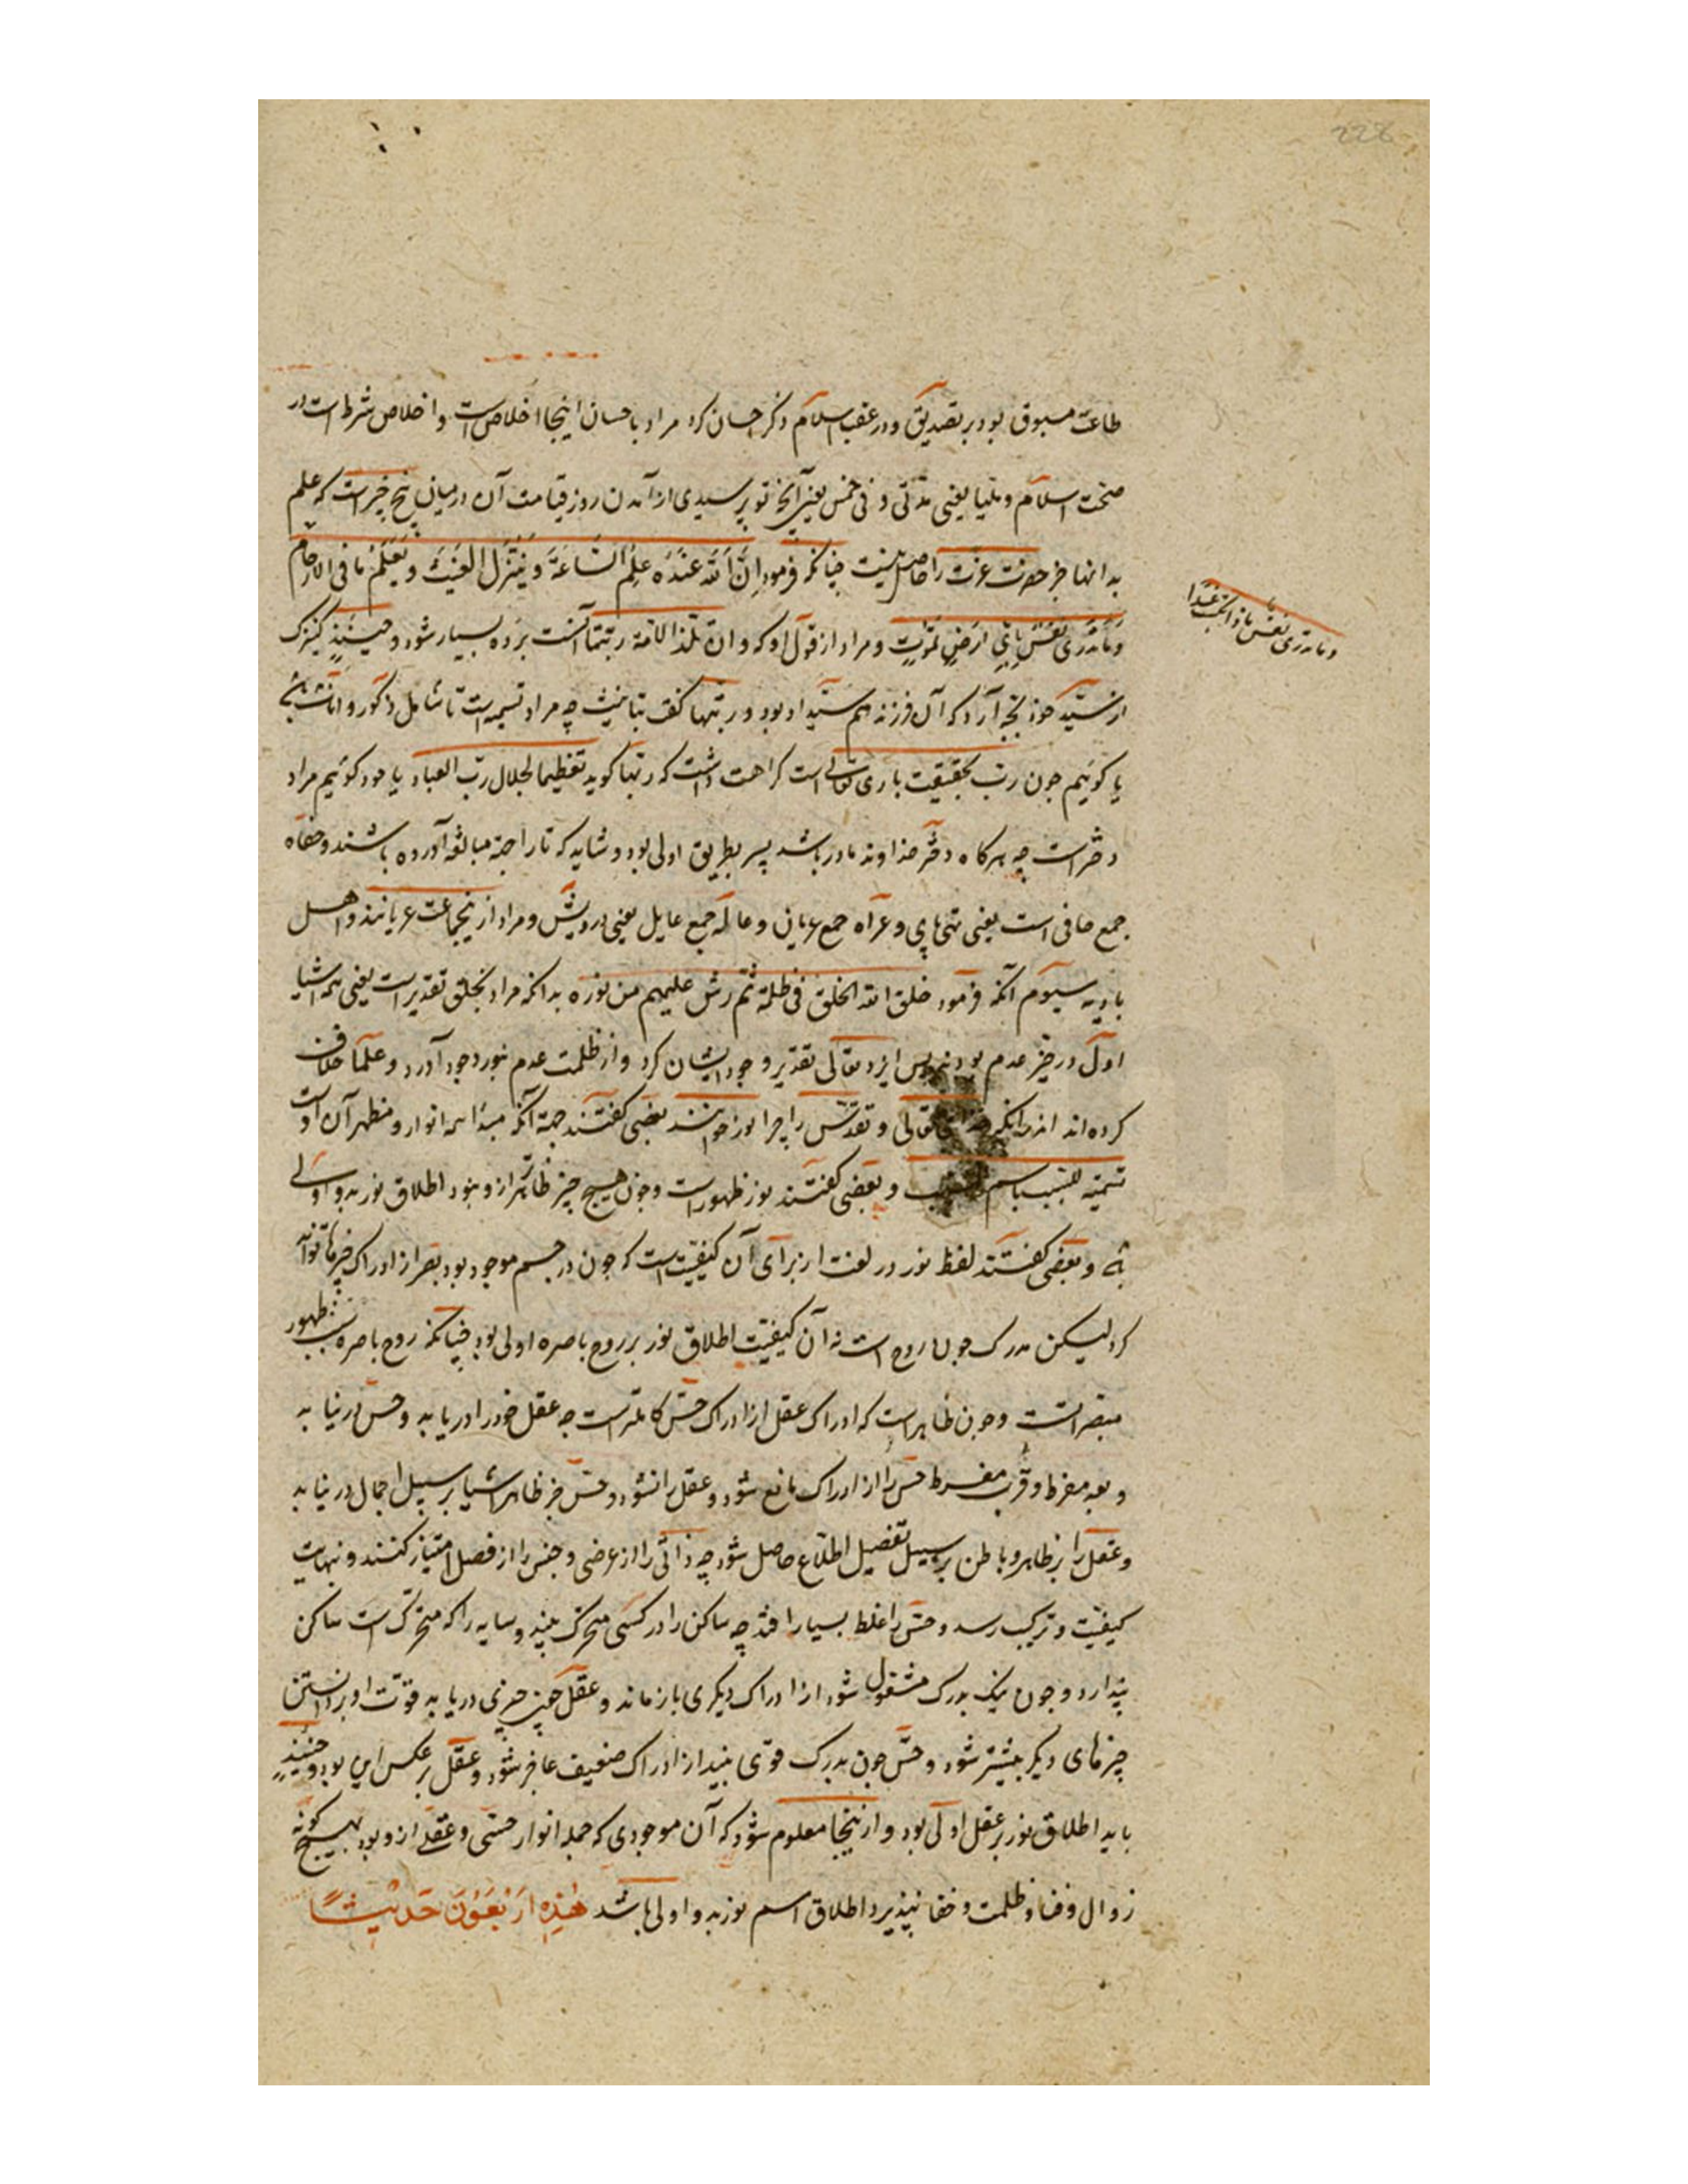 طاعت مسبوق بود بر تصدیق و در عقب اسلام ذکر احسان کرد مراد باحسان اینجا اخلاص است و اخلاص شرط است در
صحت اسلام و ملیا یعنی مدتی و فی خمس یعنی آنچ تو پرسیدی از آمدن روز قیامت آن در میان پنج چیز است که علم
بدانها جز حضرت عزت را حاصل نیست چنانکه فرمود اِنَّ اللّه عِنْدَهُ عِلْمُ السّاعَةَ وَ یُنَزِّل الغَیْثَ وَ یَعْلَمُ ما فی الارحام
وما تدری نفس ماذا تکسب غدا
وَ مَا تَدْرِی نَفْسٌ بِاَیِّ اَرْضٍ تَمُوْتُ و مراد از قول او که و ان تلد الامة ربتها آنست برده بسیار شود و حینئذٍ کنیزک
از سیّد خود بچه آرد که آن فرزند هم سیّد او بود و ربتها گفت بتانیث چه مراد تسمیه است تا شامل ذکور و اناث باشد
یا گوئیم جون رب بحقیقت باری تعالی است کراهت داشت که ربها گوید تعظیما لجلال ربّ العباد یا خود گوئیم مراد
دختر است چه هرکاه دختر خداوند مادر باشد پسر بطریق اولی بود و شاید که تا را جهة مبالغه آورده باشند و حفاه
جمع حافی است یعنی تهی پای و عراه جمع عریان و عاله جمع عایل یعنی درویش و مراد ازینجماعت عربانند و اهل
بادیه سیوم آنکه فرمود خلق الله الخلق فی ظلمة ثم رش علیهم من نوره بدانکه مراد بخلق تقدیر است یعنی همه اشیا
اول در حیز عدم بودند پس ایزد تعالی تقدیر وجود ایشان کرد و از ظلمت عدم بنور وجود آورد و علما خلاف
کرده‌اند اندرانکه تعالی و تقدس را چرا نور خوانند بعضی گفتند جهة آنکه مبدأ همه انوار و مظهر آن اوست
تسمیه للسبب باسم و بعضی گفتند نور ظهور است و چون هیچ چیز ظاهرتر ازو نبود اطلاق نور بدو اولی
به و بعضی گفتند لفظ نور در لغت از برای آن کیفیت است که جون در جسم موجود بود بصر از ادراک چیزها توانا
کرد لیکن مدرک جون روح است نه آن کیفیت اطلاق نور بر روح باصره اولی بود چنانکه روح باصره سبب ظهور
مبصر است و جون ظاهر است که ادراک عقل از ادراک حسّ کاملتر است جه عقل خود را دریابد و حس درنیابد
و بعد مفرط و قرب مفرط حس را از ادراک مانع شود و عقل را نشود و حس جز ظاهر اشیا بر سبیل اجمال درنیابد
و عقل را بر ظاهر و باطن بر سبیل تفصیل اطلاع حاصل شود چه ذاتی را از عرضی و جنس را از فصل امتیاز کنند و نهایت
کیفیت و ترکیب رسد و حس را غلط بسیار افتد چه ساکن را در کشتی متحرک بیند و سایه را که متحرک است ساکن
پندارد و جون بیک مدرک مشغول شود از ادراک دیکری باز ماند و عقل چون چیزی دریابد قوّت او بر دانستن
چیزهای دیکر بیشتر شود و حسّ جون مدرک قوی بیند از ادراک ضعیف عاجز شود و عقل بر عکس این بود و حینئذٍ
باید اطلاق نور بر عقل اولی بود و ازینجا معلوم شود که آن موجودی که جمله انوار حسّی و عقلی ازو بود بهیچ کونه
زوال و فنا و ظلمت و خفا نپذیرد اطلاق اسم نور بدو اولی باشد هٰذِهِ اَرْبَعُوْنَ حَدیْثًا